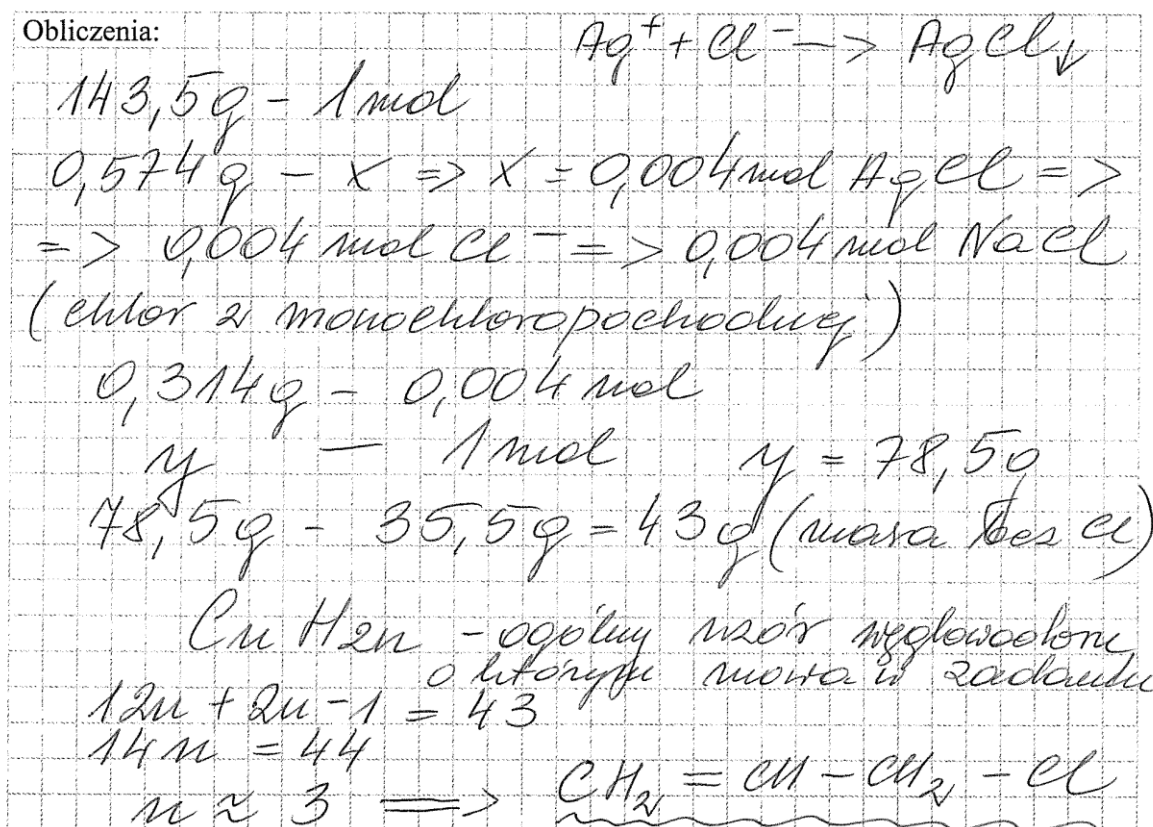 Obliczenia:
Ag⁺ + Cl⁻ –> AgCl↓
143,5g – 1mol
0,574g – x => x = 0,004mol AgCl =>
=> 0,004 mol Cl⁻ => 0,004 mol NaCl
(chlor z monochloropochodnej)
0,314g – 0,004 mol
y – 1mol y = 78,5g
78,5g – 35,5g = 43g (masa bez Cl)
CnH2n – ogólny wzór węglowodoru,
o którym mowa w zadaniu
12n + 2n – 1 = 43
14n = 44
n ≈ 3 => CH₂ = CH – CH₂ – Cl